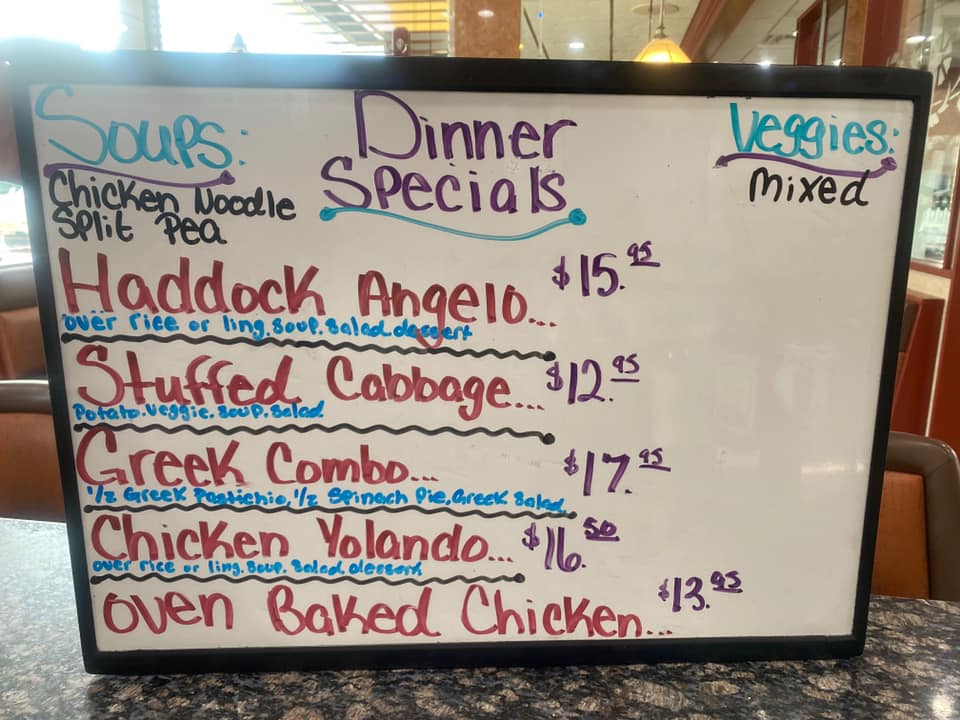 Soups:
Chicken Noodle
Split Pea
Dinner
Specials
Veggies:
mixed
Haddock Angelo... $15.95
over rice or ling. Soup. Salad. dessert
Stuffed Cabbage... $12.95
Potato. Veggie. Soup. Salad
Greek Combo... $17.95
1/2 Greek Pastichio, 1/2 Spinach Pie, Greek Salad
Chicken Yolando... $16.50
over rice or ling. Soup. Salad. dessert
oven Baked Chicken... $13.95